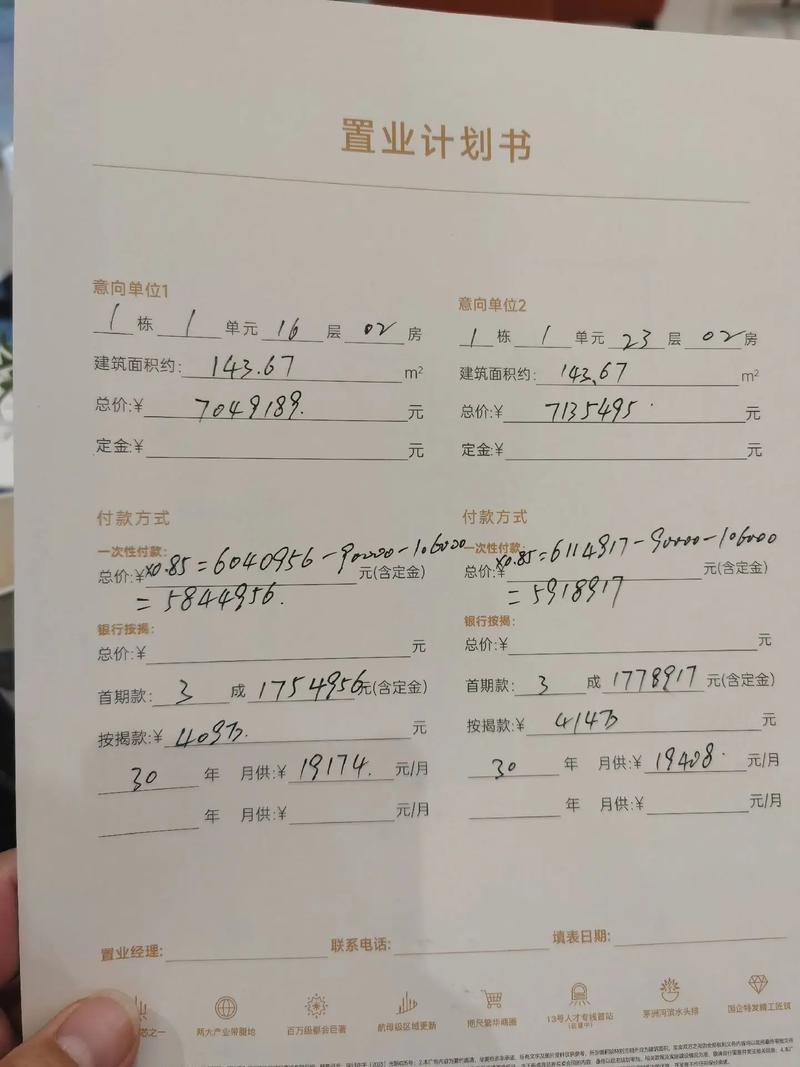 置业计划书
意向单位1
1 栋 1 单元 16 层 02 房
建筑面积约: 143.67 m²
总价:¥ 7049189. 元
定金:¥ 元
付款方式
一次性付款:
总价:¥ x0.85=6040956-90000-106000 元(含定金)
=5844956.
银行按揭:
总价:¥ 元
首期款: 3 成 1754956 元(含定金)
按揭款:¥ 409万. 元
30 年 月供:¥ 19174. 元/月
年 月供:¥ 元/月
意向单位2
1 栋 1 单元 23 层 02 房
建筑面积约: 143.67 m²
总价:¥ 7135495. 元
定金:¥ 元
付款方式
一次性付款:
总价:¥ x0.85=6114917-90000-106000 元(含定金)
=5918917
银行按揭:
总价:¥ 元
首期款: 3 成 1778917 元(含定金)
按揭款:¥ 414万 元
30 年 月供:¥ 19408. 元/月
年 月供:¥ 元/月
置业经理: 联系电话: 填表日期:
芯之一 两大产业带腹地 百万级都会巨著 航母级区域更新 咫尺繁华商圈 13号人才专线首站 茅洲河滨水头排 国企特发精工匠筑
(在建中)